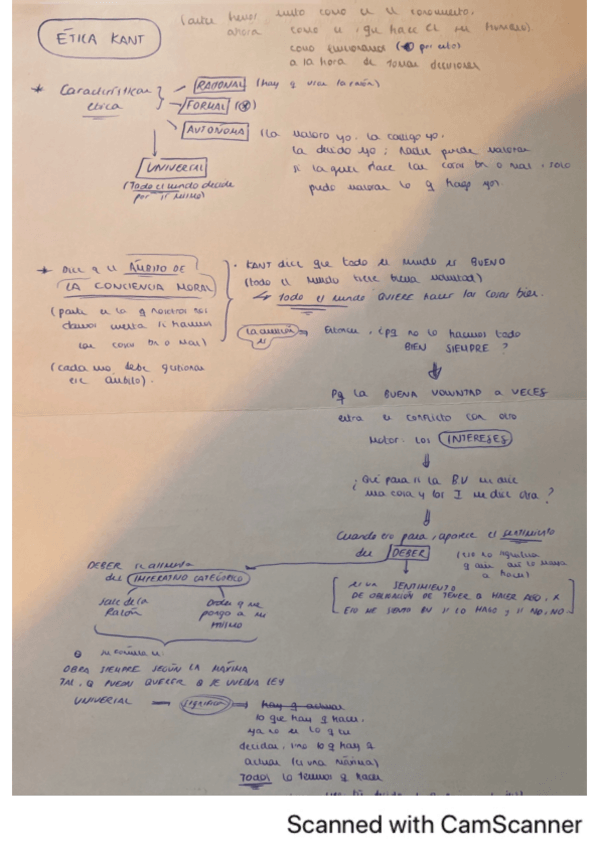 ÉTICA KANT
(antes hemos visto como es el conocimiento,
ahora como es, que hace el ser humano)
como funcionamos (por esto)
a la hora de tomar decisiones
* Características ética
RACIONAL (hay q usar la razón)
FORMAL
AUTÓNOMA (La valoro yo. La castigo yo.
La decido yo; Nadie puede valorar
si la gente hace las cosas bn o mal, solo
puedo valorar lo q hago yo).
UNIVERSAL
(Todo el mundo decide
por sí mismo)
* Dice q el ÁMBITO DE
LA CONCIENCIA MORAL
(parte en la q nosotros nos
damos cuenta si hacemos
las cosas bn o mal)
(cada uno debe gestionar
ese ámbito).
• KANT dice que todo el mundo es BUENO
(todo el mundo tiene buena voluntad)
↳ Todo el mundo QUIERE hacer las cosas bien.
La cuestión es ⇒ Entonces, ¿pq no lo hacemos todo
BIEN SIEMPRE?
Pq la BUENA VOLUNTAD a VECES
entra en conflicto con otro
motor: los INTERESES
¿Qué pasa si la BV me dice
una cosa y los I me dice otra?
Cuando eso pasa, aparece el sentimiento
del DEBER (eso no significa
q aún así lo vaya
a hacer)
es un SENTIMIENTO
DE OBLIGACIÓN DE TENER Q HACER ALGO, X
ESO ME SIENTO BN SI LO HAGO, Y SI NO, NO.
DEBER se alimenta
del IMPERATIVO CATEGÓRICO
Sale de la
Razón
Orden q me
pongo a mi
mismo
OBRA SIEMPRE SEGÚN LA MÁXIMA
TAL, Q PUEDAS QUERER Q SE VUELVA LEY
UNIVERSAL — significa ⇒ hay q actuar
lo que hay q hacer,
ya no es lo q tu
decidas, sino lo q hay q
actuar (es una máxima)
TODOS lo tenemos q hacer
Scanned with CamScanner